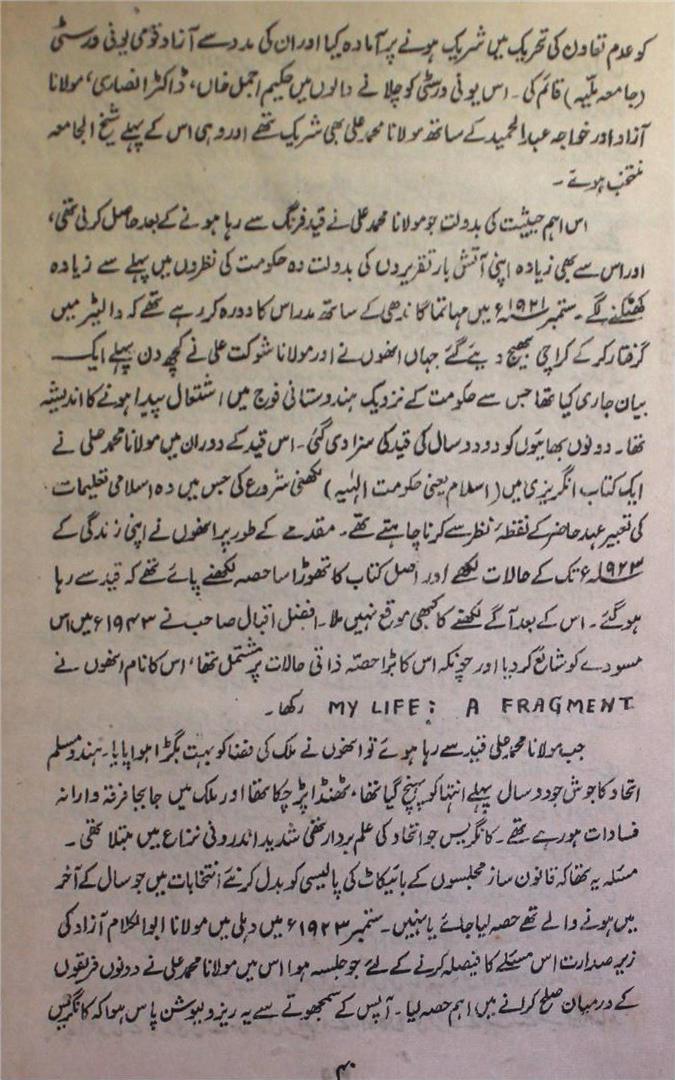 کو عدم تعاون کی تحریک میں شریک ہونے پر آمادہ کیا اور ان کی مدد سے آزاد قومی یونی ورسٹی
(جامعہ ملیّہ) قائم کی۔ اس یونی ورسٹی کو چلانے والوں میں حکیم اجمل خاں، ڈاکٹر انصاری، مولانا
آزاد اور خواجہ عبدالحمید کے ساتھ مولانا محمد علی بھی شریک تھے اور وہی اس کے پہلے شیخ الجامعہ
منتخب ہوئے۔
اس اہم حیثیت کی بدولت جو مولانا محمد علی نے قید فرنگ سے رہا ہونے کے بعد حاصل کرلی تھی،
اور اس سے بھی زیادہ اپنی آتش بار تقریروں کی بدولت وہ حکومت کی نظروں میں پہلے سے زیادہ
کھٹکنے لگے۔ ستمبر ۱۹۲۱ء میں مہاتما گاندھی کے ساتھ مدراس کا دورہ کر رہے تھے کہ والٹیر میں
گرفتار کر کے کراچی بھیج دیئے گئے جہاں انھوں نے اور مولانا شوکت علی نے کچھ دن پہلے ایک
بیان جاری کیا تھا جس سے حکومت کے نزدیک ہندوستانی فوج میں اشتعال پیدا ہونے کا اندیشہ
تھا۔ دونوں بھائیوں کو دو دو سال کی قید کی سزا دی گئی۔ اس قید کے دوران میں مولانا محمد علی نے
ایک کتاب انگریزی میں (اسلام یعنی حکومت الٰہیہ) لکھنی شروع کی جس میں وہ اسلامی تعلیمات
کی تعبیر عہد حاضر کے نقطۂ نظر سے کرنا چاہتے تھے۔ مقدمے کے طور پر انھوں نے اپنی زندگی کے
۱۹۲۳ء تک کے حالات لکھے اور اصل کتاب کا تھوڑا سا حصہ لکھنے پائے تھے کہ قید سے رہا
ہو گئے۔ اس کے بعد آگے لکھنے کا کبھی موقع نہیں ملا۔ افضل اقبال صاحب نے ۱۹۴۳ء میں اس
مسودے کو شائع کر دیا اور چونکہ اس کا بڑا حصّہ ذاتی حالات پر مشتمل تھا، اس کا نام انھوں نے
MY LIFE: A FRAGMENT رکھا۔
جب مولانا محمد علی قید سے رہا ہوئے تو انھوں نے ملک کی فضا کو بہت بگڑا ہوا پایا۔ ہندو مسلم
اتحاد کا جوش جو دو سال پہلے انتہا کو پہنچ گیا تھا، ٹھنڈا پڑ چکا تھا اور ملک میں جا بجا فرقہ وارانہ
فسادات ہو رہے تھے۔ کانگریس جو اتحاد کی علم بردار تھی شدید اندرونی نزاع میں مبتلا تھی۔
مسئلہ یہ تھا کہ قانون ساز مجلسوں کے بائیکاٹ کی پالیسی کو بدل کر نئے انتخابات میں جو سال کے آخر
میں ہونے والے تھے حصہ لیا جائے یا نہیں۔ ستمبر ۱۹۲۳ء میں دہلی میں مولانا ابوالکلام آزاد کی
زیر صدارت اس مسئلے کا فیصلہ کرنے کے لئے جو جلسہ ہوا اس میں مولانا محمد علی نے دونوں فریقوں
کے درمیان صلح کرانے میں اہم حصہ لیا۔ آپس کے سمجھوتے سے یہ ریزولیوشن پاس ہوا کہ کانگریس
۴۰